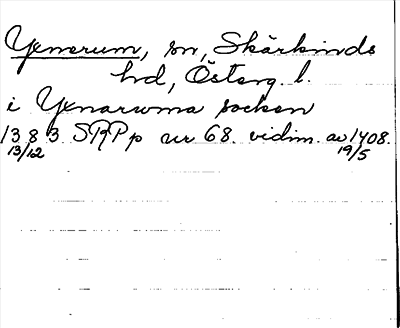 Yxnerum, sn, Skärkinds
hd, Österg. l.
i Yxnarwma socken
1383 SRPp nr 68. vidim. av 1408.
13/12 19/5